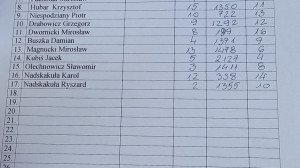 8. Hubar Krzysztof 15 1350 11
9. Niespodziany Piotr 10 722 13
10. Drabowicz Grzegorz 9 1292 12
11. Dwornicki Mirosław 8 199 16
12. Buszka Damian 4 1371 9
13. Magnucki Mirosław 13 1478 6
14. Kubij Jacek 5 2127 4
15. Olechnowicz Sławomir 3 1411 8
16. Nadskakuła Karol 12 338 14
17. Nadskakuła Ryszard 2 1355 10
18.
19.
20.
21.
22.
23.
24.
25.